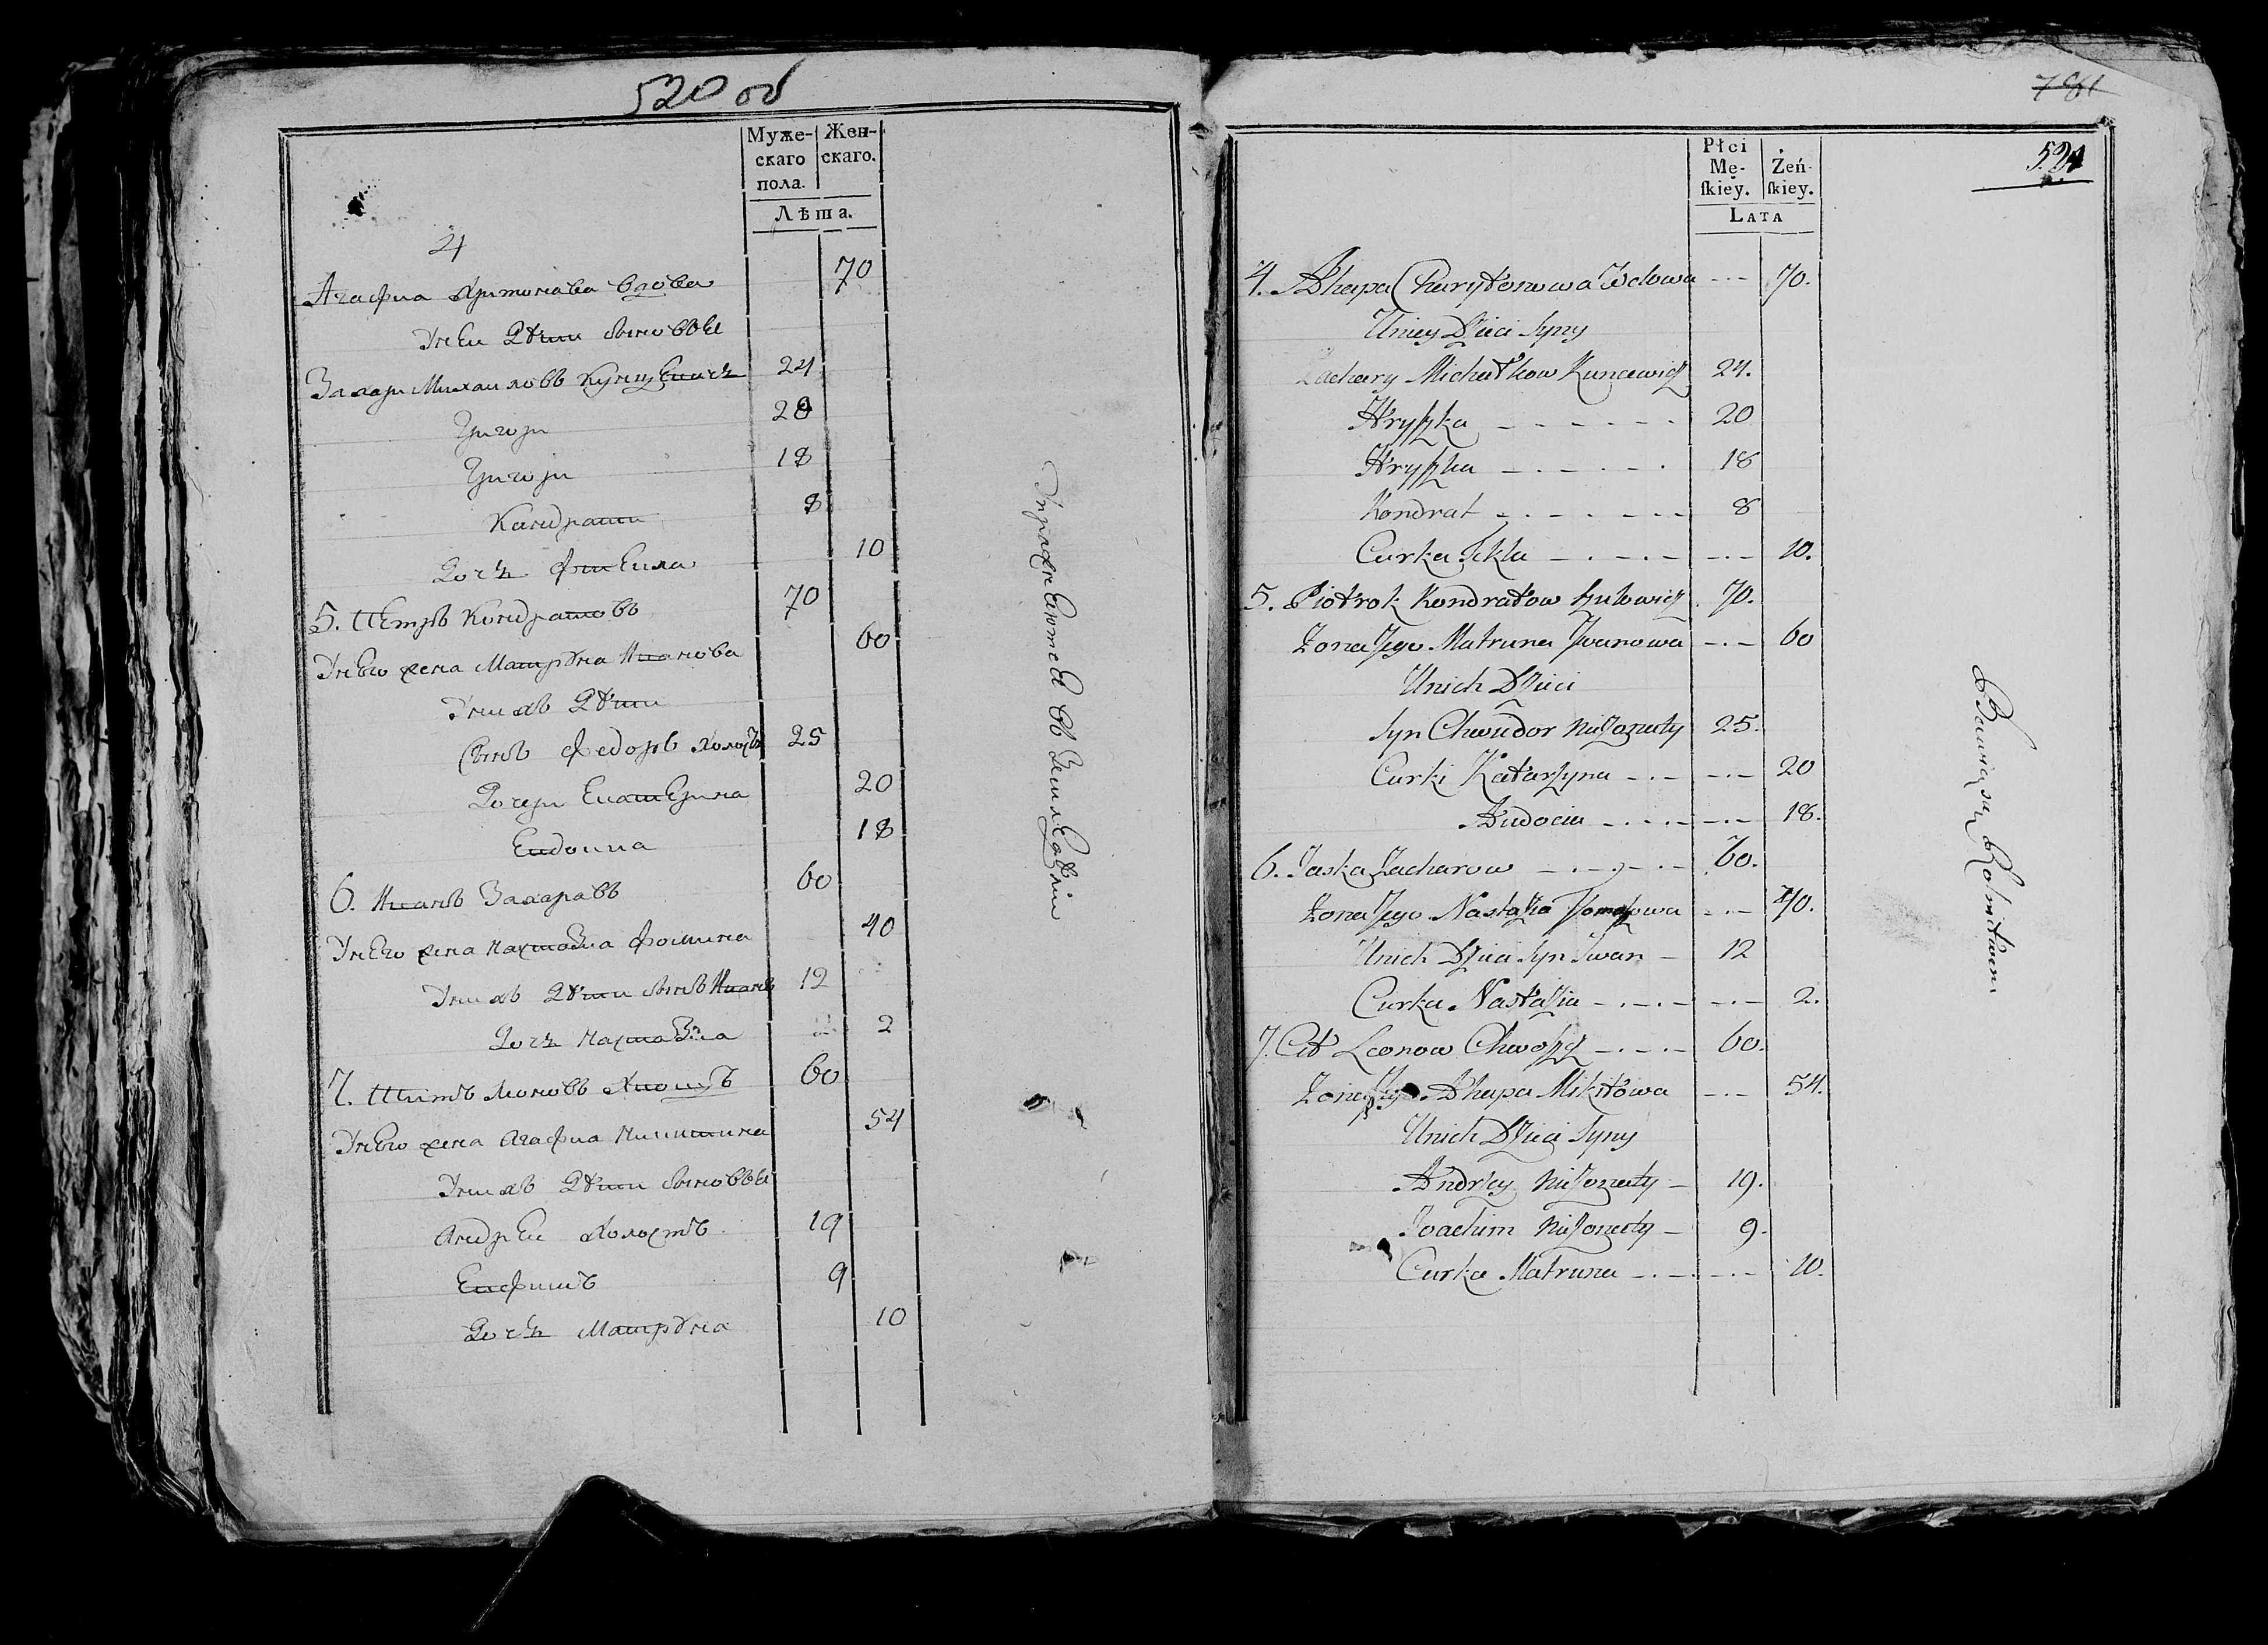 520 об
Муже-
скаго
пола.
Жен-
скаго.
Лѣта.
4
Агафиа Аритонова вдова 70
У неи Дѣти сыновьѣ
Захари Михаиловъ Кунцевичъ 24
Григори 20
Григори 18
Кондрати 8
Дочъ Фтекла 10
5. Петръ Кондратовъ 70
У нево жена Матруна Иванова 60
У нихъ Дѣти
Сынъ Федоръ холостъ 25
Дочери Екатерина 20
Евдокиа 18
6. Иванъ Захаравъ 60
У нево жена Настазиа Фомина 40
У нихъ Дѣти сынъ Иванъ 12
Дочъ Настазиа 2
7. Титъ Леоновъ Хвощъ 60
У нево жена Агафиа Никитина 54
У нихъ Дѣти сыновьѣ
Андреи холостъ 19
Евфимъ 9
Дочъ Матруна 10
Упражняются въ земледѣліи
781
521
Płci
Mę-
ſkiey.
Żeń-
ſkiey.
Lata
4. Ahapa Charytonowa Wdowa 70.
U niey Dzieci Syny
Zachary Michałkow Kuncewicz 24.
Hryszka 20
Hryszka 18
Kondrat 8
Curka Tekla 10.
5. Piotrok Kondratow 70.
Zona Jego Matruna Iwanowa 60
U nich Dzieci
Syn Chwiedor nieżonaty 25.
Curki Katarzyna 20
Audocia 18.
6. Jaska Zacharow 60.
Zona Jego Nastazia Tomaszowa 40.
U nich Dzieci Syn Iwan 12
Curka Nastazia 2.
7. Cit Leonow Chwoszcz 60.
Zona Jego Ahapa Mikitowa 54.
U nich Dzieci Syny
Andrzey nieżonaty 19.
Joachim nieżonaty 9.
Curka Matruna 10.
Bawią się Rolnictwem